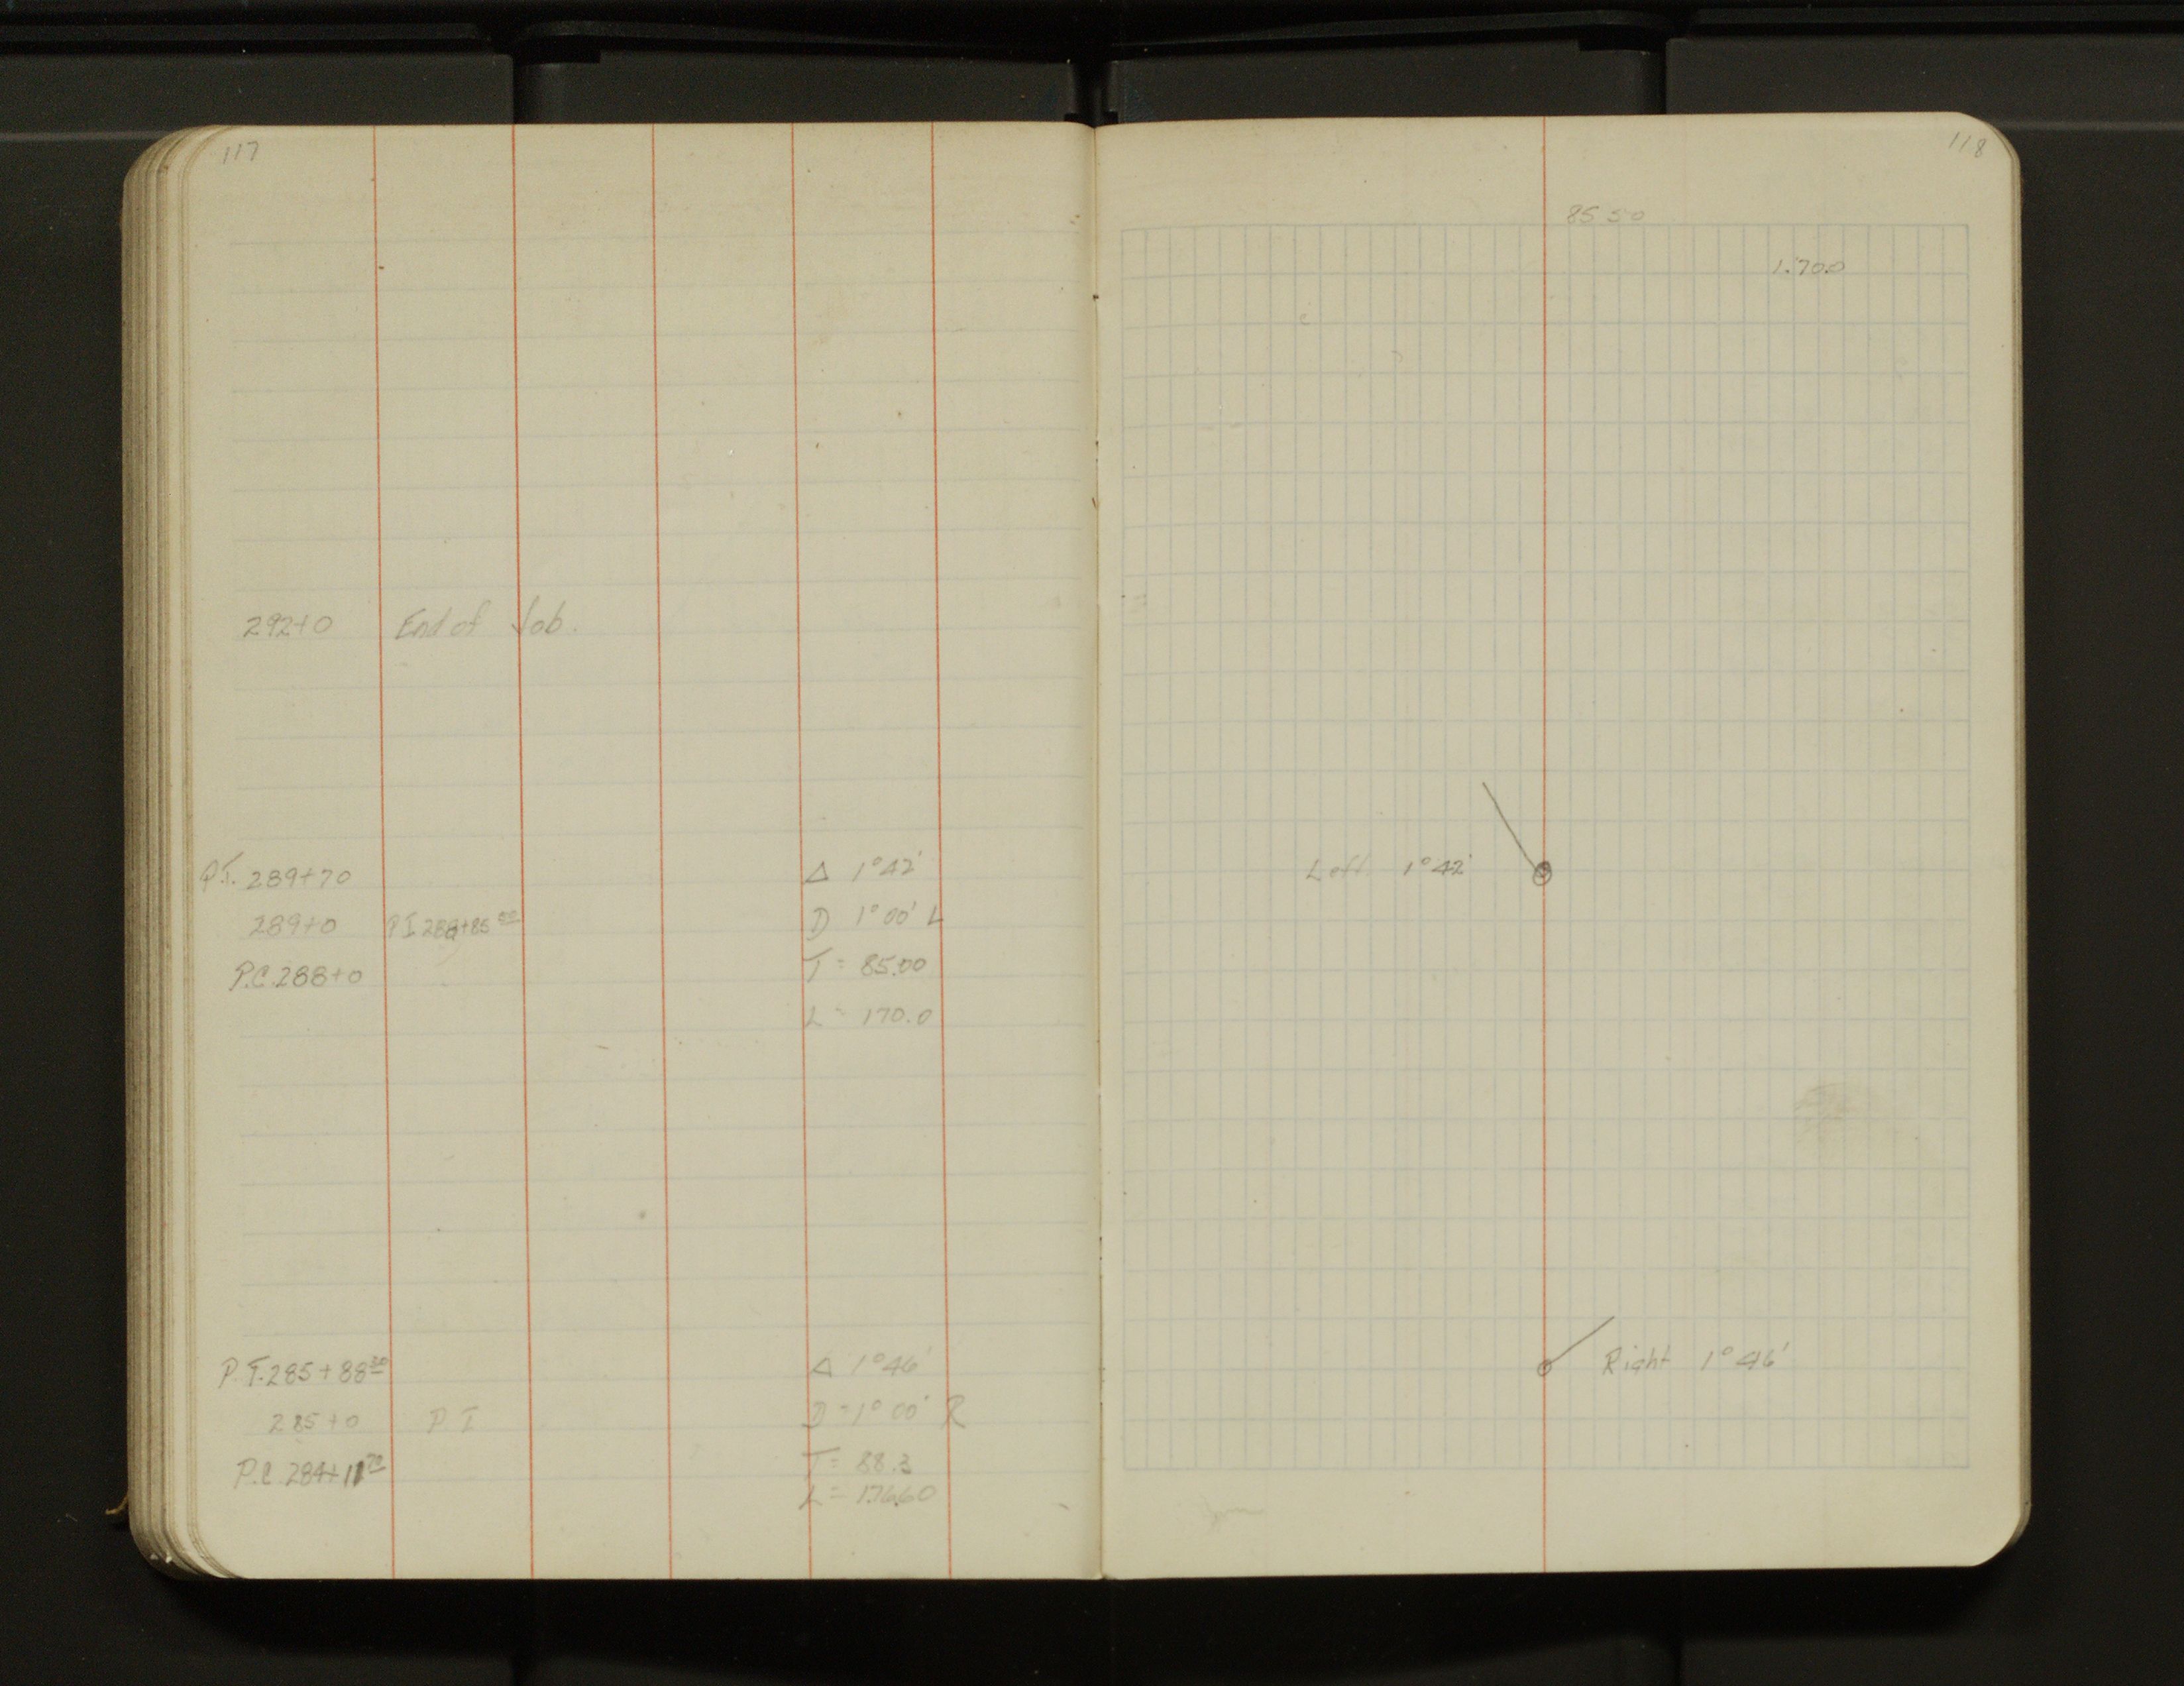 117
292+0 End of Job.
P.T. 289+70 Δ 1°42'
289+0 P I 288+85 00 D 1°00' L
P.C. 288+0 T = 85.00
L = 170.0
P.T. 285+88 30 Δ 1°46'
285+0 P I D = 1°00' R
P.C. 284+11 70 T = 88.3
L = 176.60
118
85 50
1.70.0
Left 1°42'
Right 1°46'